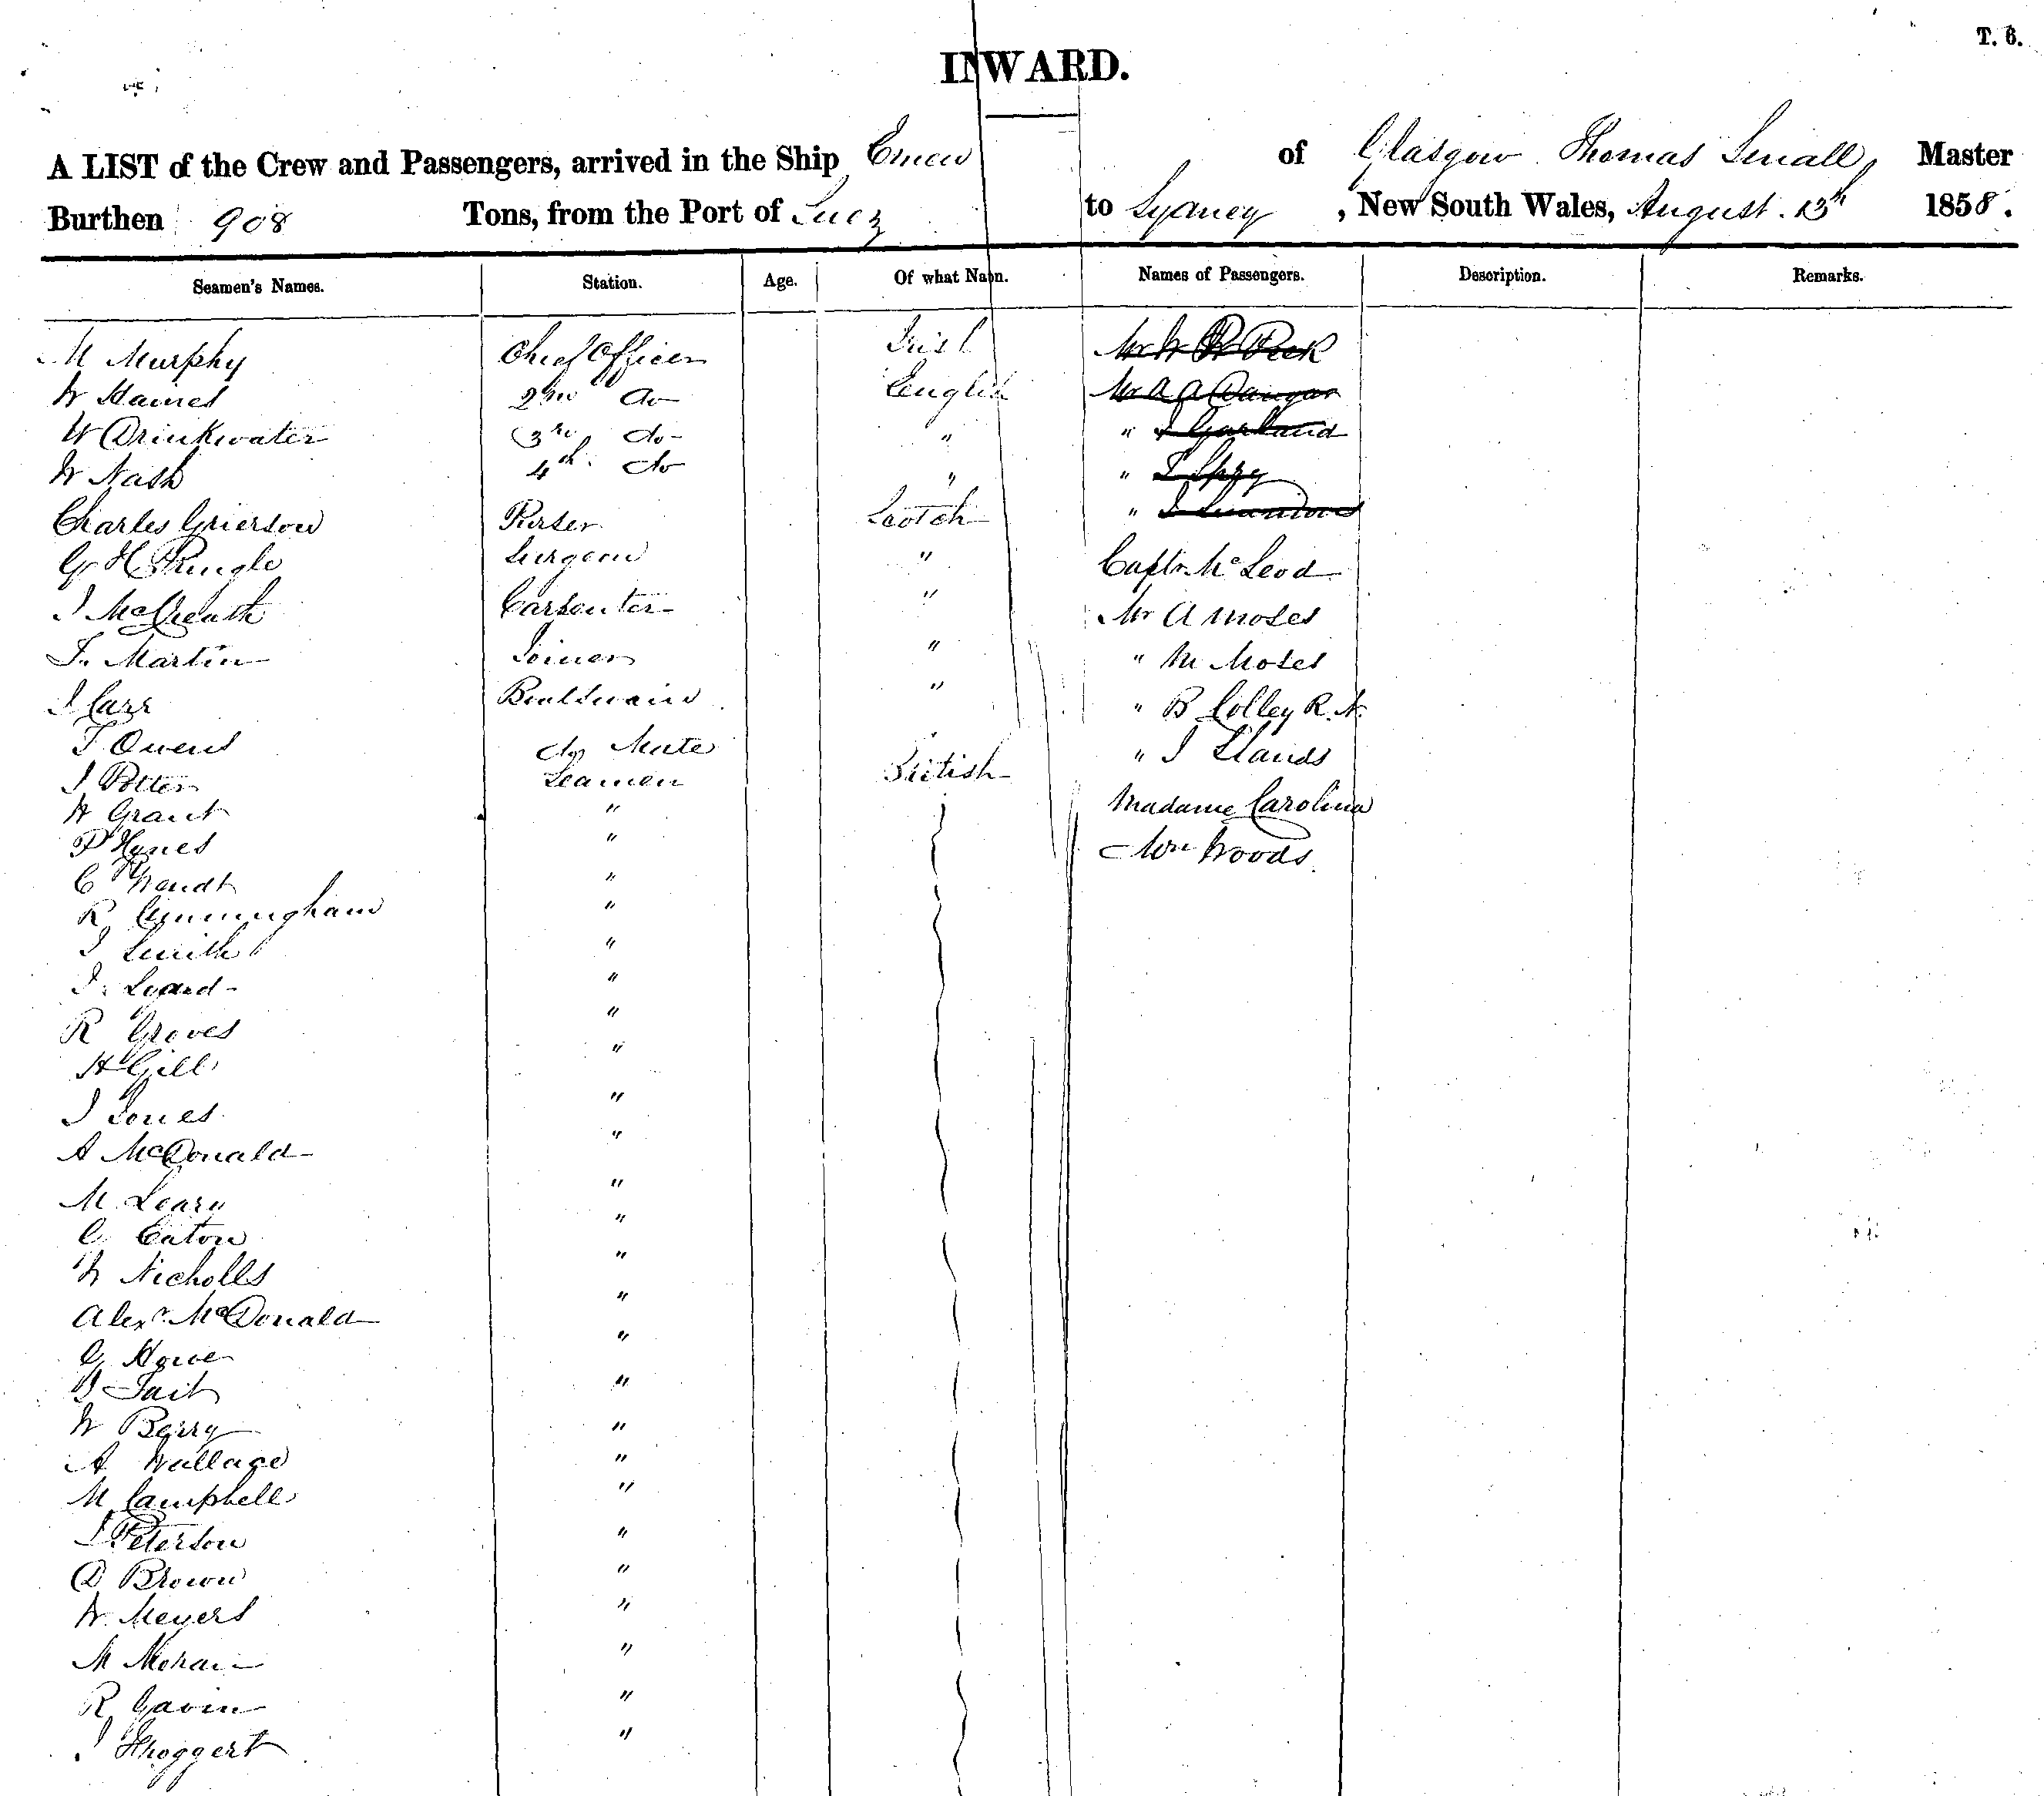 T. 6.
INWARD.
A LIST of the Crew and Passengers, arrived in the Ship Emeu of Glasgow Thomas Small, Master
Burthen 908 Tons, from the Port of Suez to Sydney, New South Wales, August 13th 1858.
Seamen's Names. Station. Age. Of what Natn. Names of Passengers. Description. Remarks.
M Murphy Chief Officer Irish Mr W R Peck
W Haines 2nd do English Mr A A Dangar
W Drinkwater 3rd do " " J Garland
W Nash 4th do " "
Charles Grierson Purser Scotch " J
G H Pringle Surgeon " Captn McLeod
J McCreath Carpenter " Mr A Moses
F. Martin Joiner " " M Moses
J Carr Boatswain " " B Colley R.N.
T Owens do Mate " J
J Potter Seamen British Madame Carolina
W Grant " Mrs Woods
P Hynes "
C Wendt "
R Cunningham "
J Smith "
J. "
R Groves "
H Gill "
J Jones "
A McDonald "
M Leary "
C Eaton "
W Nicholls "
Alexr McDonald "
G Howe "
J Tait "
W Berry "
A Wallace "
M Campbell "
J Peterson "
D Brown "
W. Meyers "
M "
R Gavin "
J "